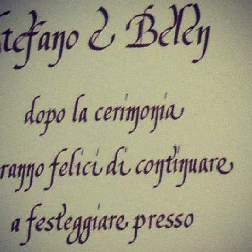 Stefano e Belén
dopo la cerimonia
saranno felici di continuare
a festeggiare presso